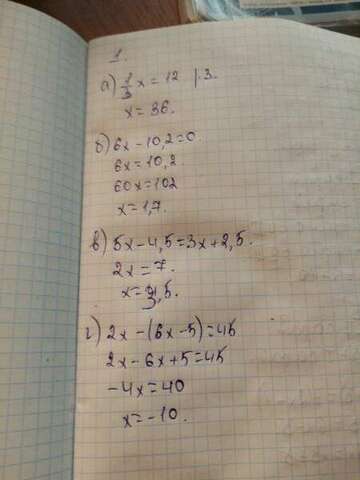 1.
а) 1/3 x = 12 | · 3.
x = 36.
б) 6x - 10,2 = 0
6x = 10,2.
60x = 102
x = 1,7.
в) 5x - 4,5 = 3x + 2,5.
2x = 7.
x = 3,5.
г) 2x - (6x - 5) = 45
2x - 6x + 5 = 45
-4x = 40
x = -10.